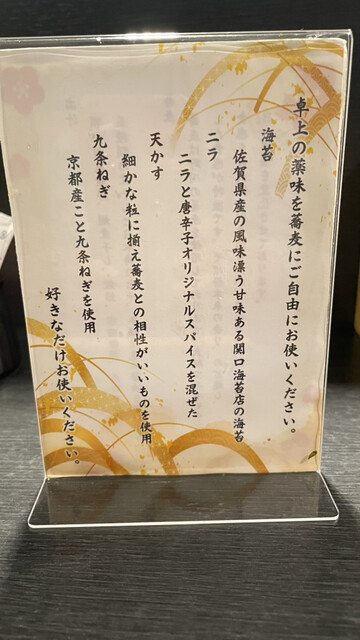 卓上の薬味を蕎麦にご自由にお使いください。
海苔
佐賀県産の風味漂う甘味ある関口海苔店の海苔
ニラ
ニラと唐辛子オリジナルスパイスを混ぜた
天かす
細かな粒に揃え蕎麦との相性がいいものを使用
九条ねぎ
京都産こと九条ねぎを使用
好きなだけお使いください。